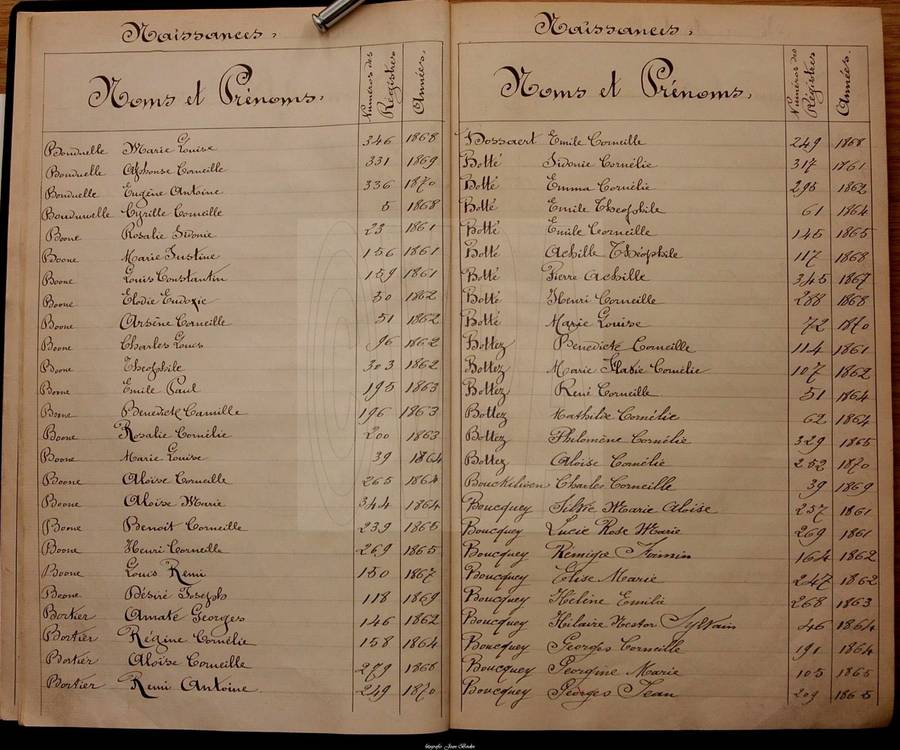 Naissances,
Noms et Prénoms,
Numéros des Registres
Années.
Bonduelle Marie Louise 346 1868
Bonduelle Alphonse Corneille 331 1869
Bonduelle Eugène Antoine 336 1870
Bonduwelle Cyrille Corneille 5 1868
Boone Rosalie Sidonie 23 1861
Boone Marie Justine 156 1861
Boone Louis Constantin 159 1861
Boone Elodie Eudoxie 50 1862
Boone Arsène Corneille 51 1862
Boone Charles Louis 96 1862
Boone Théophile 303 1862
Boone Emile Paul 195 1863
Boone Benedict Camille 196 1863
Boone Rosalie Cornélie 200 1863
Boone Marie Louise 39 1864
Boone Aloïse Corneille 265 1864
Boone Aloïse Marie 344 1864
Boone Benoit Corneille 239 1865
Boone Henri Corneille 269 1865
Boone Louis Remi 150 1867
Boone Désiré Joseph 118 1869
Bortier Amate Georges 146 1862
Bortier Régine Cornélie 158 1864
Bortier Aloïse Corneille 279 1868
Bortier Remi Antoine 249 1870
Naissances,
Noms et Prénoms,
Numéros des Registres
Années.
Bossaert Emile Corneille 249 1868
Botté Sidonie Cornélie 317 1861
Botté Emma Cornélie 295 1862
Botté Emile Théophile 61 1864
Botté Emile Corneille 145 1865
Botté Achille Théophile 117 1868
Botté Pierre Achille 345 1867
Botté Henri Corneille 288 1868
Botté Marie Louise 72 1870
Bottez Benedicte Corneille 114 1861
Bottez Marie Cornélie 107 1862
Bottez René Corneille 51 1864
Bottez Mathilde Cornélie 62 1864
Bottez Philomène Cornélie 329 1865
Bottez Aloïse Cornélie 252 1870
Charles Corneille 39 1869
Boucquey Silvie Marie Aloïse 237 1861
Boucquey Lucie Rose Marie 269 1861
Boucquey Remige Firmin 164 1862
Boucquey Elise Marie 247 1862
Boucquey Hélène Emilie 268 1863
Boucquey Hilaire Nestor Sylvain 46 1864
Boucquey Georges Corneille 191 1864
Boucquey Georgine Marie 105 1865
Boucquey Georges Jean 203 1865